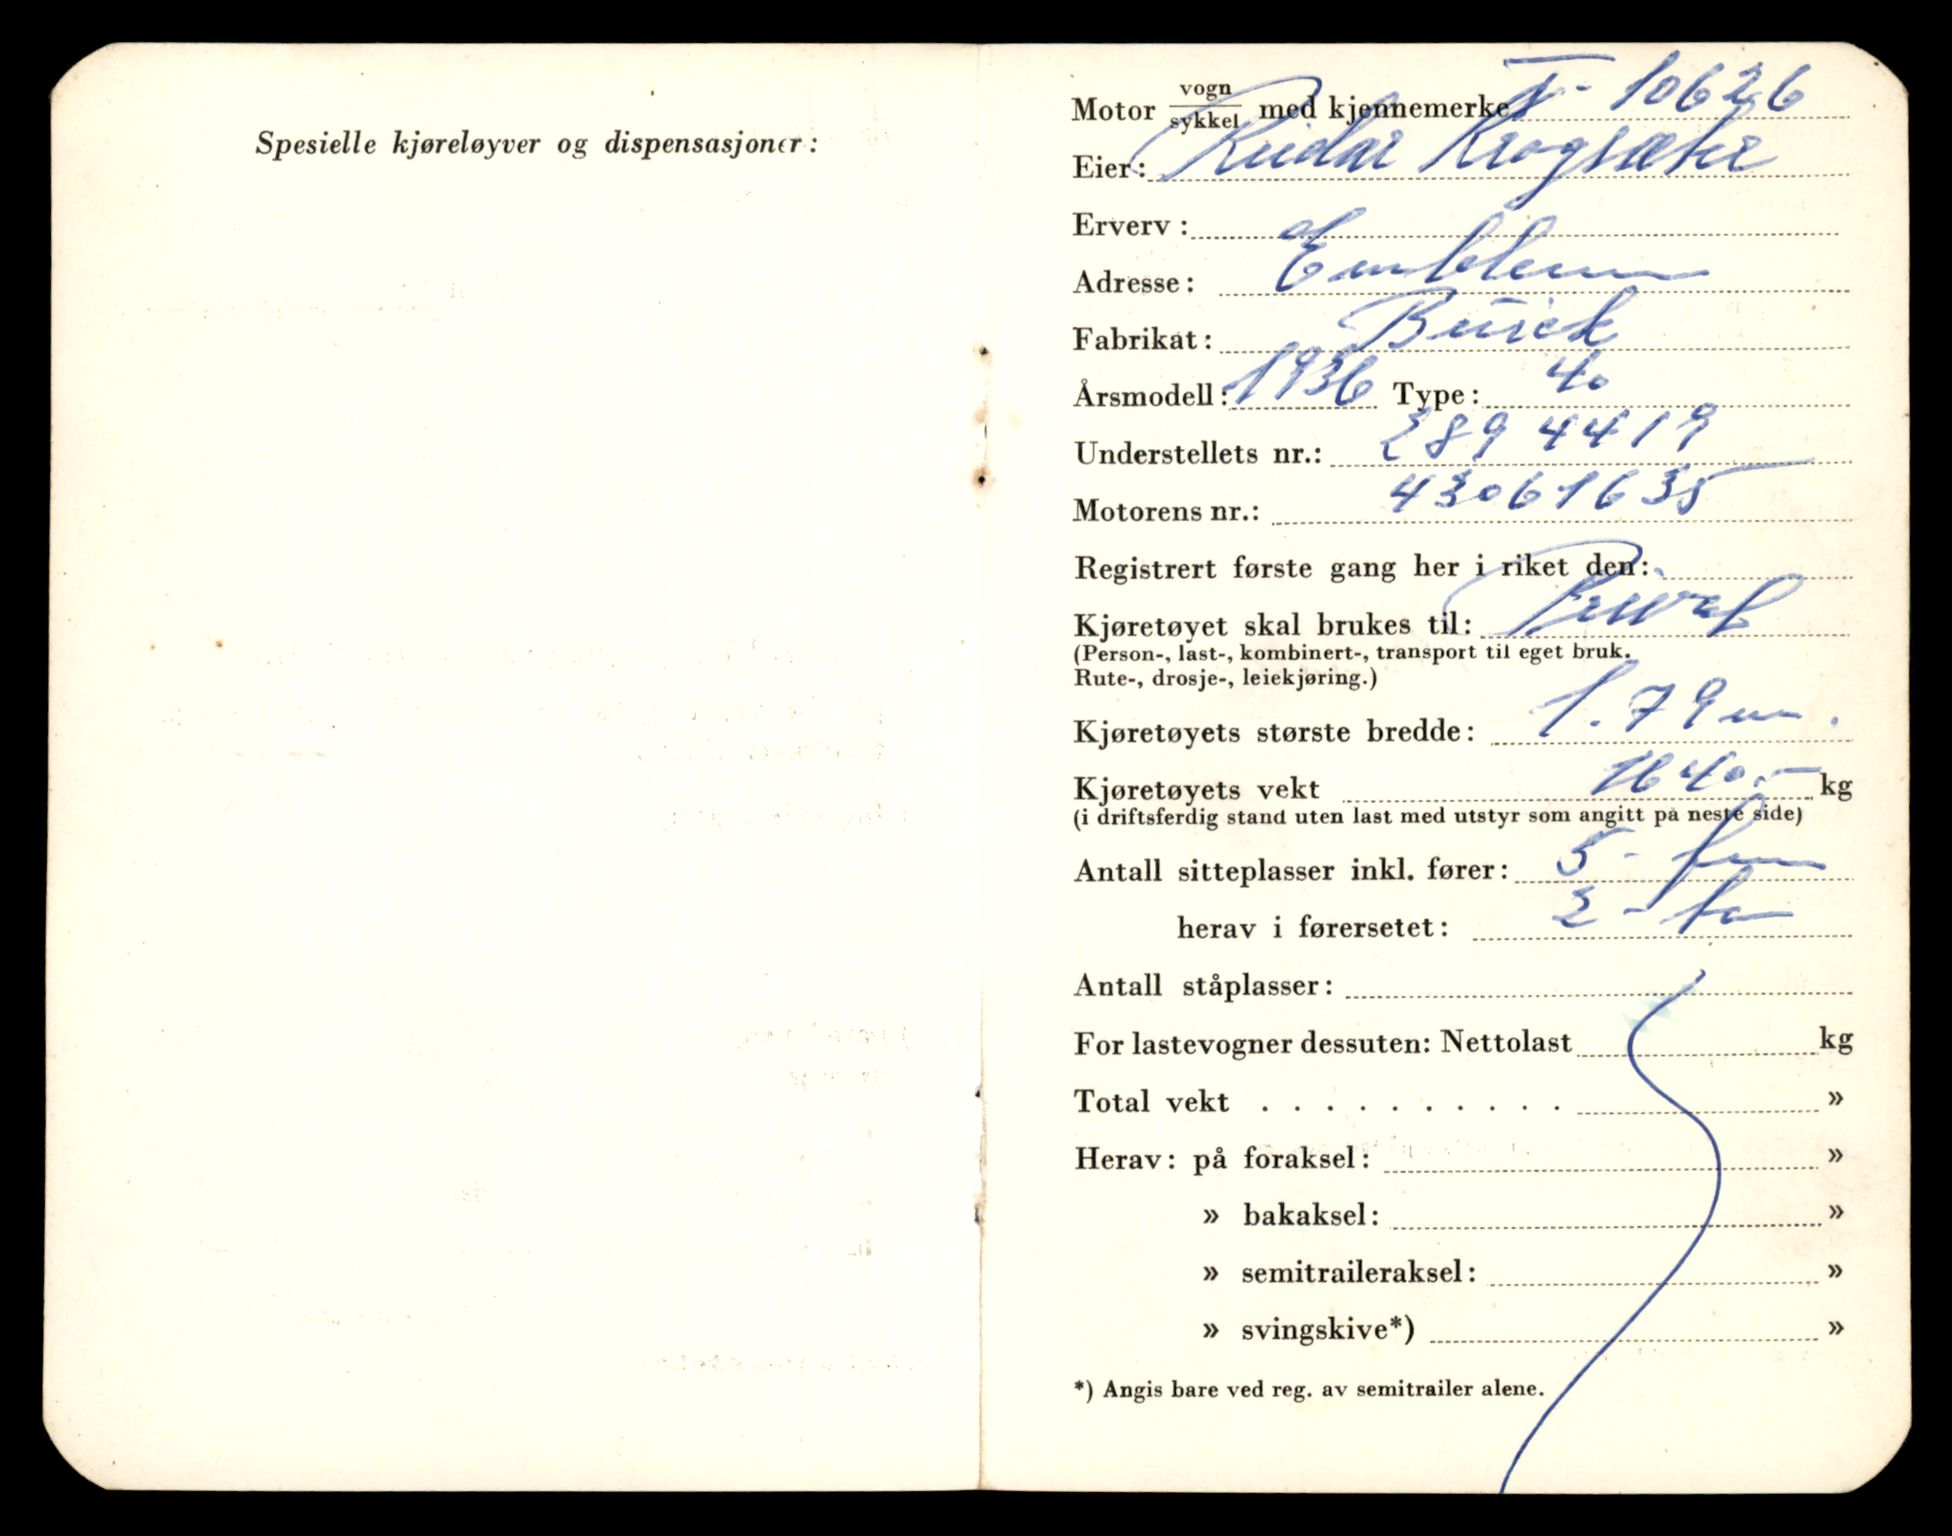 Spesielle kjøreløyver og dispensasjoner:
Motor vogn/sykkel med kjennemerke T- 10626
Eier: Reidar Krogsæter
Erverv:
Adresse: Emblem
Fabrikat: Buick
Årsmodell: 1936 Type: 40
Understellets nr.: 2894419
Motorens nr.: 43061635
Registrert første gang her i riket den:
Kjøretøyet skal brukes til: Privat
(Person-, last-, kombinert-, transport til eget bruk.
Rute-, drosje-, leiekjøring.)
Kjøretøyets største bredde: 1.79 m.
Kjøretøyets vekt 1640.- kg
(i driftsferdig stand uten last med utstyr som angitt på neste side)
Antall sitteplasser inkl. fører: 5 - fem
herav i førersetet: 2 - to
Antall ståplasser:
For lastevogner dessuten: Nettolast kg
Total vekt . . . . . . . . . . »
Herav: på foraksel: »
» bakaksel: »
» semitraileraksel: »
» svingskive*) »
*) Angis bare ved reg. av semitrailer alene.